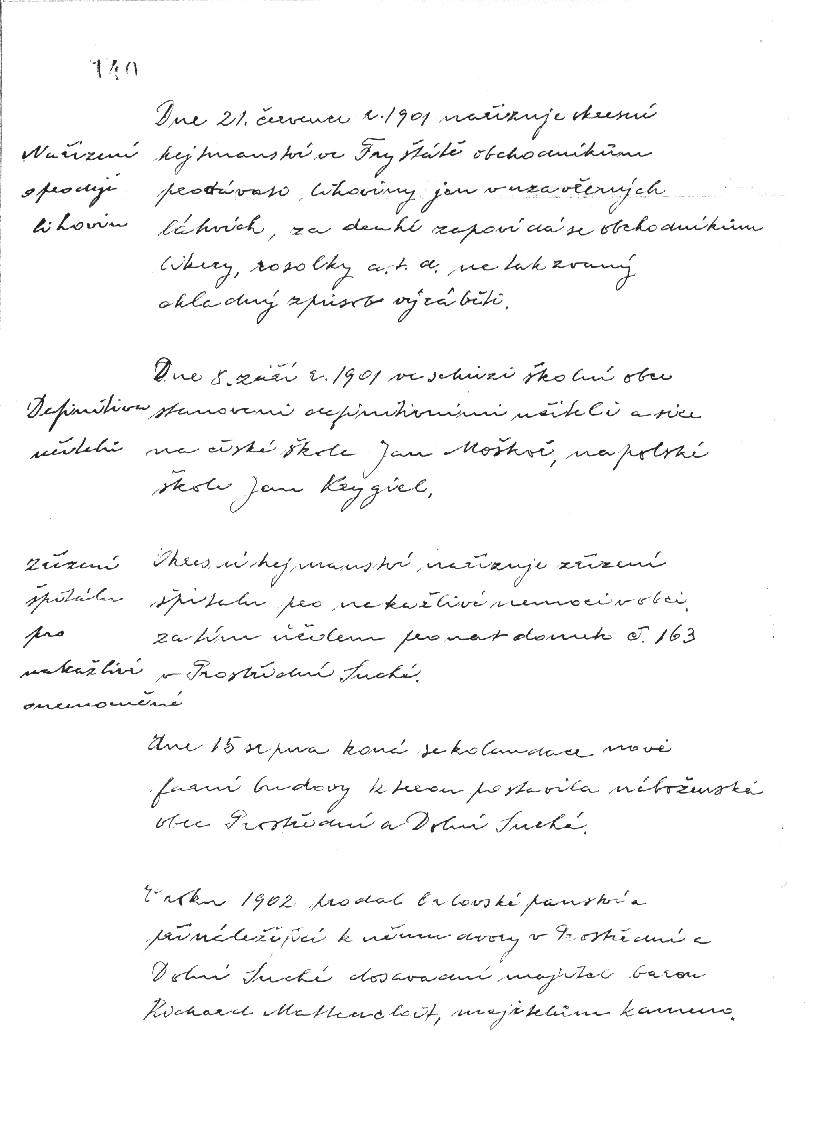 140
Dne 21. července r. 1901 nařizuje okresní
Nařízení
hejtmanství ve Fryštátě obchodníkům
o prodeji
prodávati lihoviny jen v uzavčených
lihovin
láhvích, za druhé zapovídá se obchodníkům
likery, rosolky a.t.d. na tak zvaný
chladný způsob vyráběti.
Dne 8. září r. 1901 ve schůzi školní obce
Definitiva
stanoveni definitivními učiteli a sice
učitelů
na české škole Jan Moškoř, na polské
škole Jan Krygiel.
Zřízení
Okresní hejtmanství nařizuje zřízení
špitálu
špitalu pro nakažlivé nemoci v obci,
pro
za tím účelem pronat domek č. 163
nakažlivě
v Prostřední Suché.
onemocněné
Dne 15 srpna koná se kolaudace nové
farní budovy kterou postavila náboženská
obec Prostřední a Dolní Suchá.
V roku 1902 prodal Orlovské panství a
přináležející k němu dvory v Prostřední a
Dolní Suché dosavadní majitel baron
Richard Mattencloit, majitelům kameno.